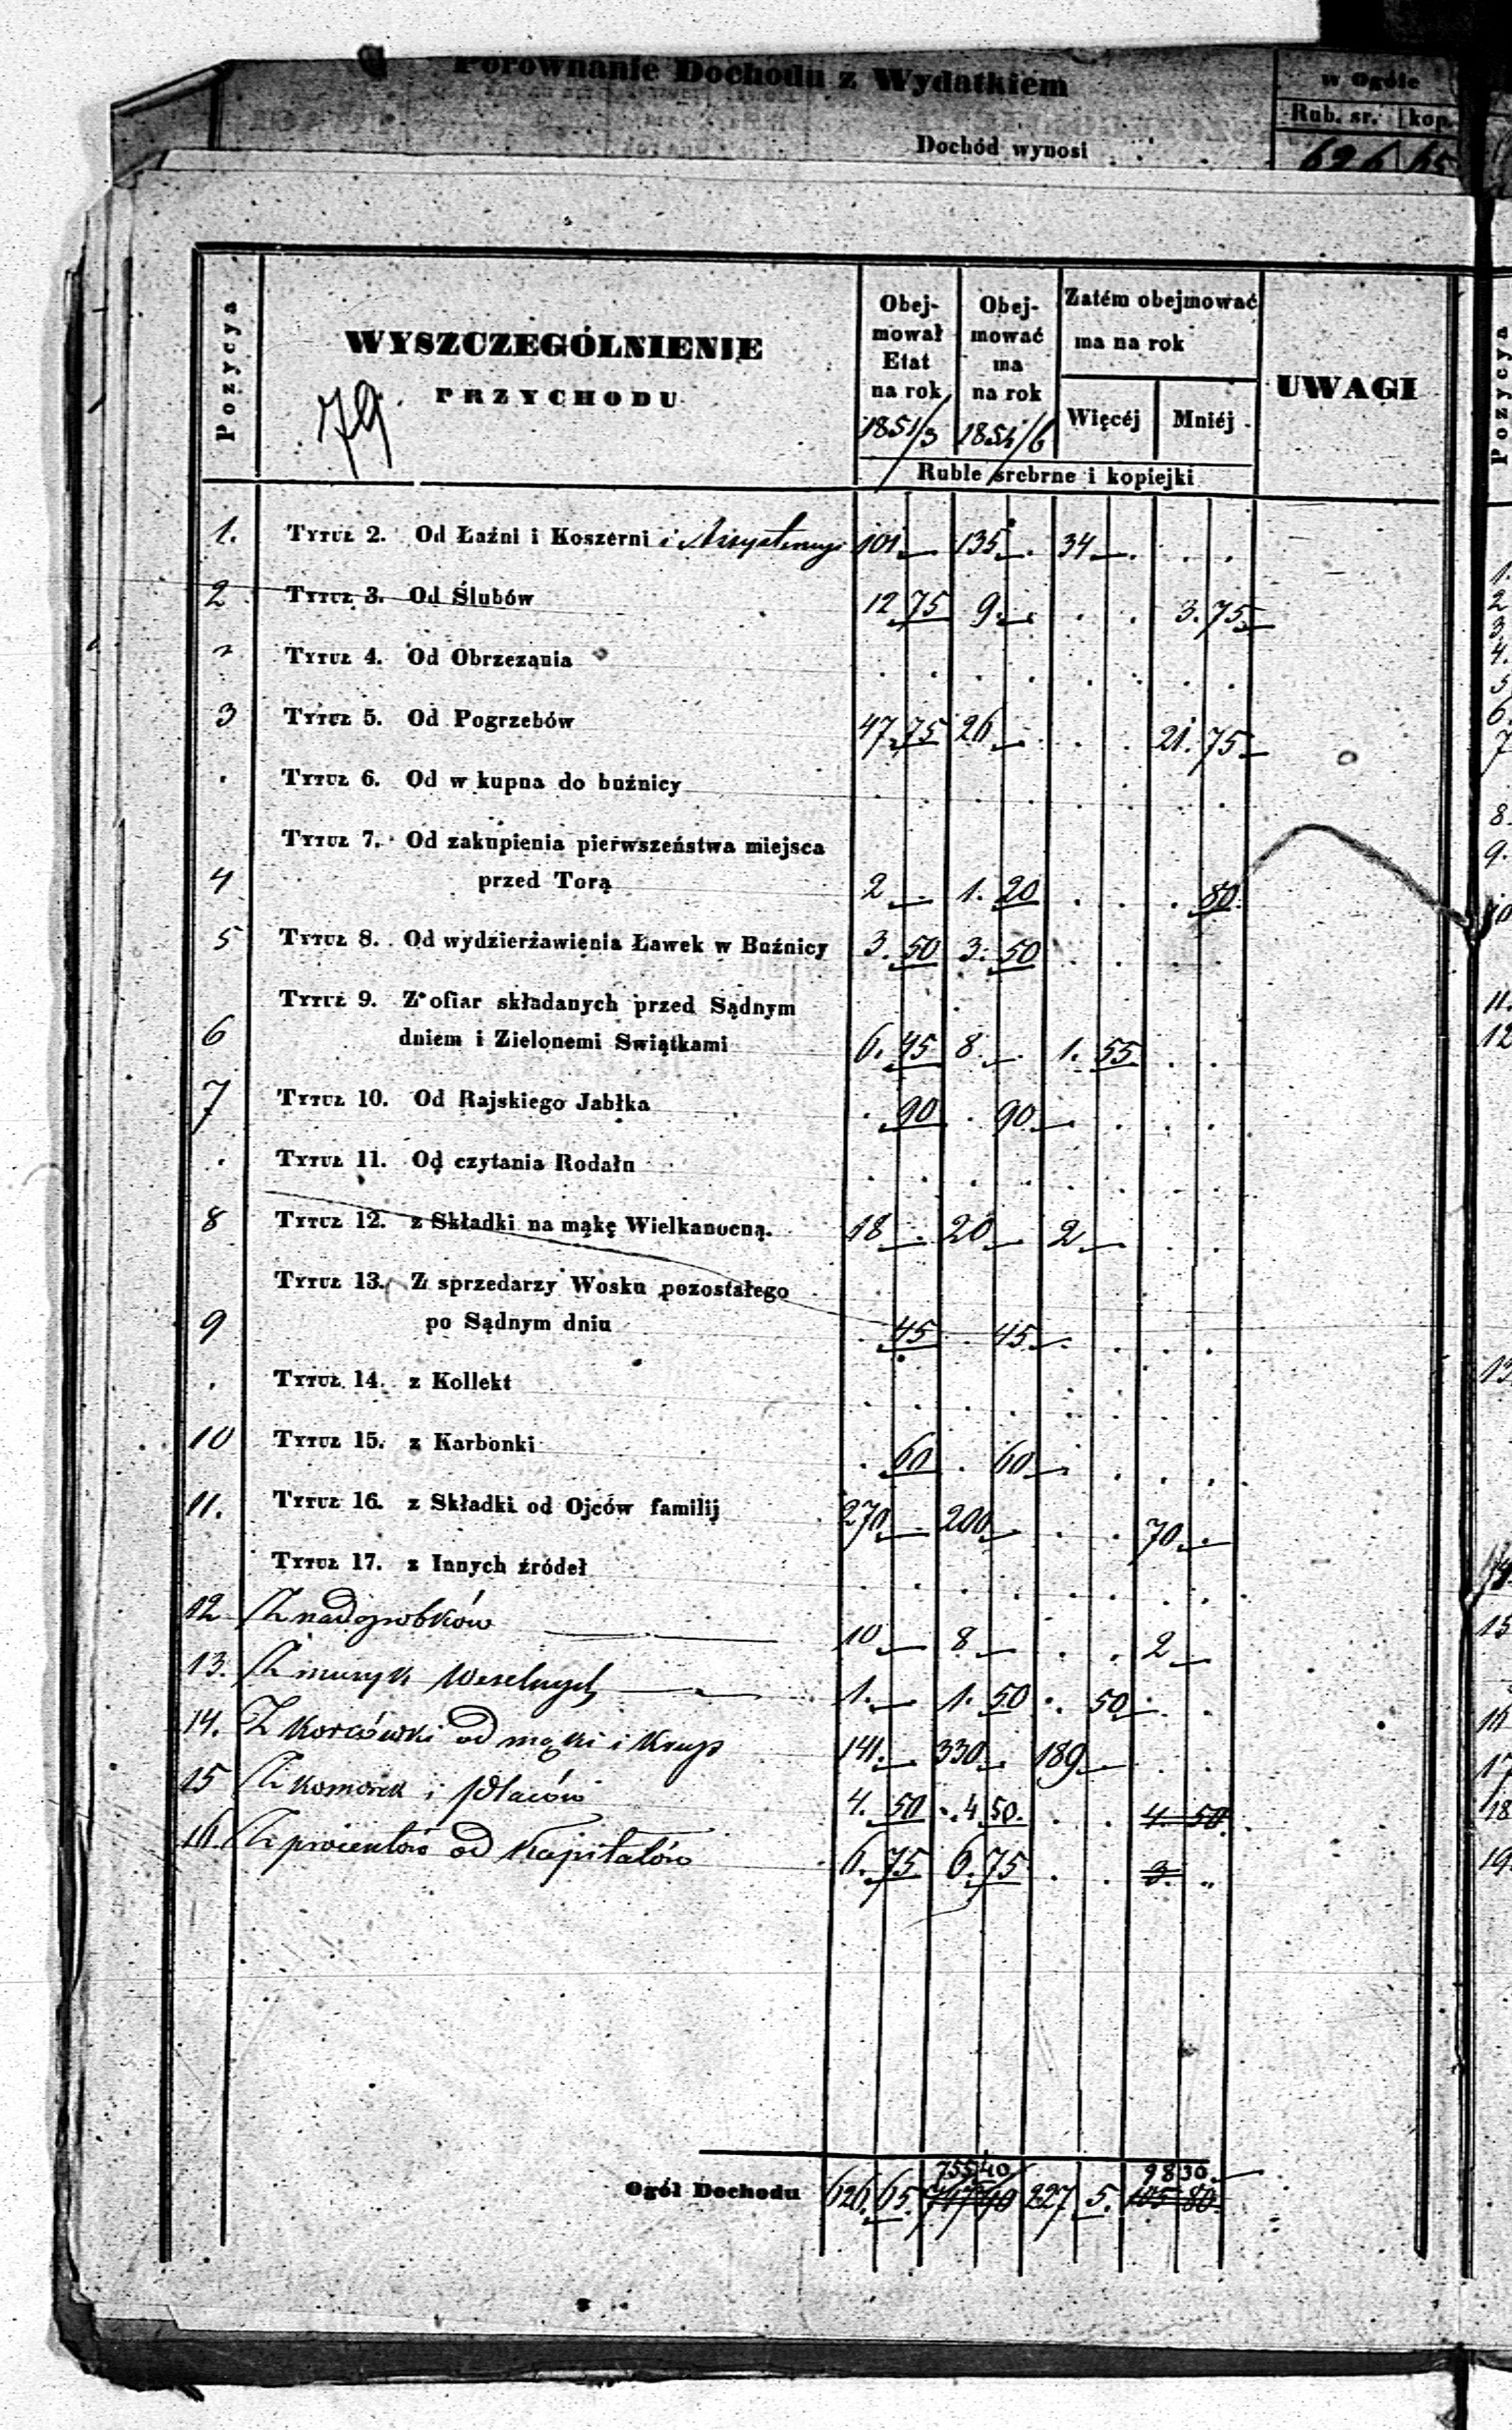 Porównanie Dochodu z Wydatkiem
w Ogóle
Rub. sr. kop.
Dochód wynosi
626 65
Pozycya
WYSZCZEGÓLNIENIE
PRZYCHODU
79.
Obejmował Etat na rok 1851/3
Obejmować ma na rok 1854/6
Zatém obejmować ma na rok
Więcéj
Mniéj
UWAGI
Ruble srebrne i kopiejki
1. Tytuł 2. Od Łaźni i Koszerni i 101 — 135 — 34 — . .
2 Tytuł 3. Od Ślubów 12 75 9. — . . 3. 75
Tytuł 4. Od Obrzezania . . . . . . . .
3 Tytuł 5. Od Pogrzebów 47. 75 26 — . . 21. 75
. Tytuł 6. Od w kupna do buźnicy . . . . . . . .
Tytuł 7. Od zakupienia pierwszeństwa miejsca
4 przed Torą 2 — 1. 20 . . . 80
5 Tytuł 8. Od wydzierżawienia Ławek w Buźnicy 3. 50 3. 50 . . . .
Tytuł 9. Z ofiar składanych przed Sądnym
6 dniem i Zielonemi Swiątkami 6. 45 8 — 1. 55 . .
7 Tytuł 10. Od Rajskiego Jabłka . 90 . 90 . . . .
. Tytuł 11. Od czytania Rodału . . . . . . . .
8 Tytuł 12. z Składki na mąkę Wielkanocną. 18 — 20 — 2 — . .
Tytuł 13. Z sprzedarzy Wosku pozostałego
9 po Sądnym dniu . 45 . 45 . . . .
. Tytuł 14. z Kollekt . . . . . . . .
10 Tytuł 15. z Karbonki . 60 . 60 . . . .
11. Tytuł 16. z Składki od Ojców familij 270 — 200 — . . 70 —
Tytuł 17. z Innych źródeł . . . . . . . .
12 Z nadgrobków 10 — 8 — . . 2 —
13. Z muzyk Weselnych 1. — 1. 50 . 50 . .
14. Z Korcówki od mąki i Krup 141. — 330 — 189 — . .
15 Z komorek i Placów 4. 50 . 4 50. . . 4. 50.
16. Z procentów od Kapitałów 6. 75 6. 75 . . 3. „
755 40 98 30
Ogół Dochodu 626. 65. 747 40 227 5. 105 80.